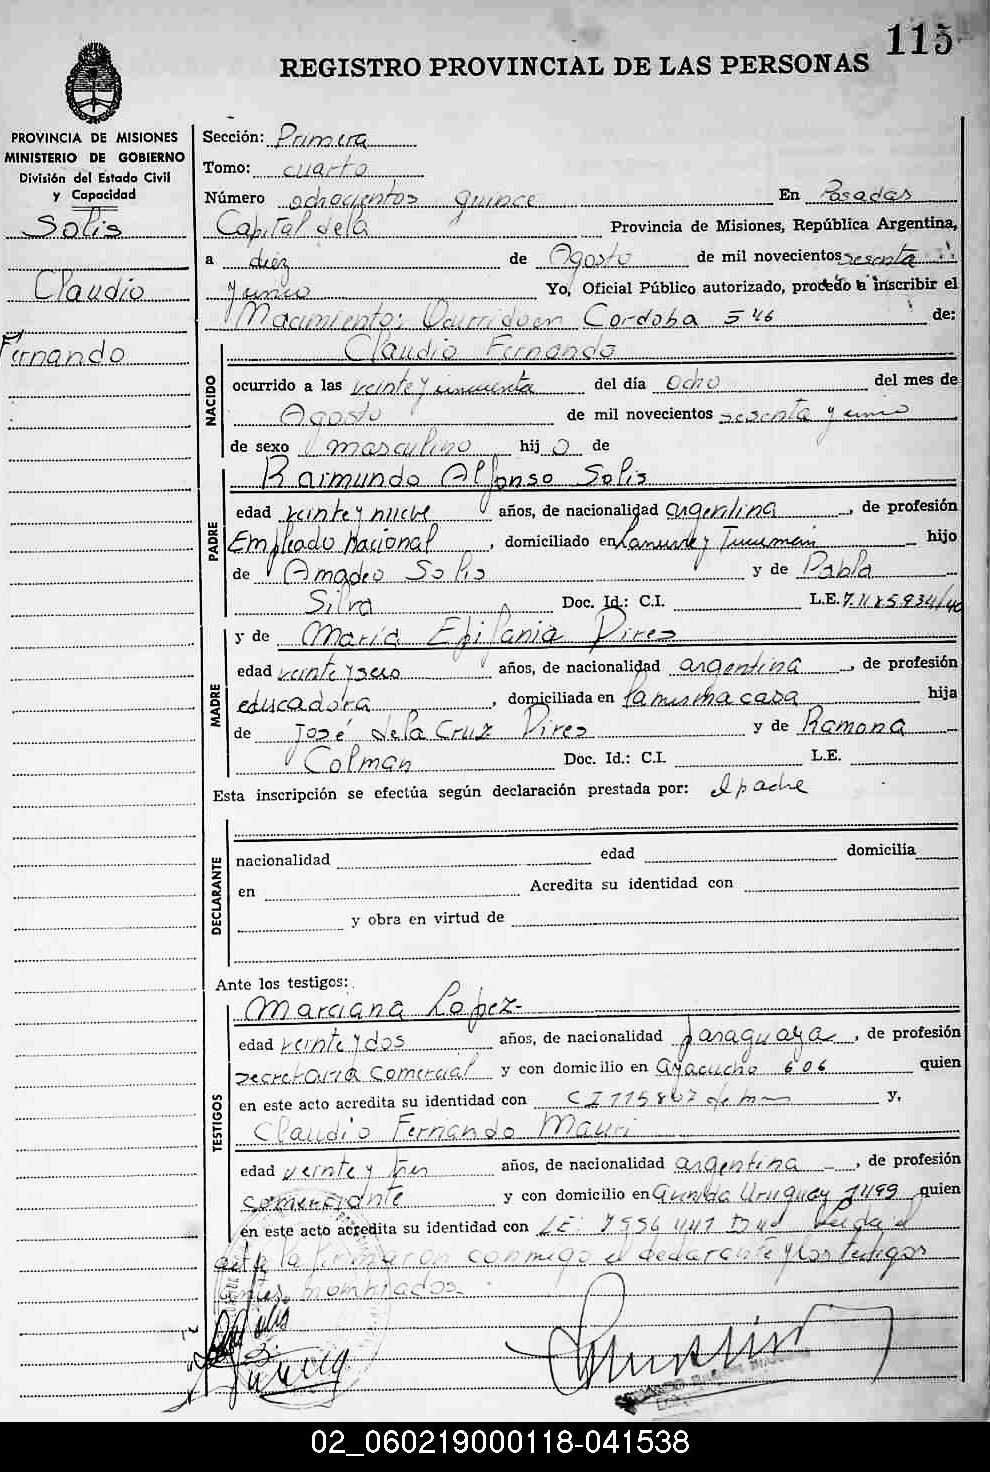 115
REGISTRO PROVINCIAL DE LAS PERSONAS
PROVINCIA DE MISIONES
MINISTERIO DE GOBIERNO
División del Estado Civil
y Capacidad
Solis
Claudio
Fernando
Sección: Primera
Tomo: cuarto
Número ochocientos quince En Posadas
Capital de la Provincia de Misiones, República Argentina,
a diez de Agosto de mil novecientos sesenta
y uno Yo, Oficial Público autorizado, procedo a inscribir el
Nacimiento: Ocurrido en Cordoba 546 de:
NACIDO
Claudio Fernando
ocurrido a las veinte y cincuenta del día ocho del mes de
Agosto de mil novecientos sesenta y uno
de sexo masculino hijo de
PADRE
Raimundo Alfonso Solis
edad veinte y nueve años, de nacionalidad argentina, de profesión
Empleado Nacional, domiciliado en Lanusse y Tucumán hijo
de Amadeo Solis y de Pabla
Silva Doc. Id.: C.I. L.E.
MADRE
y de Maria Epifania Pires
edad veinte y seis años, de nacionalidad argentina, de profesión
educadora, domiciliada en la misma casa hija
de José de la Cruz Pires y de Ramona
Colman Doc. Id.: C.I. L.E.
Esta inscripción se efectúa según declaración prestada por: el padre
DECLARANTE
nacionalidad edad domicilia
en Acredita su identidad con
y obra en virtud de
Ante los testigos:
TESTIGOS
Marciana Lopez-
edad veinte y dos años, de nacionalidad paraguaya, de profesión
secretaria comercial y con domicilio en Ayacucho 606 quien
en este acto acredita su identidad con CI y,
Claudio Fernando Mauri
edad veinte y tres años, de nacionalidad argentina, de profesión
comerciante y con domicilio en Avenida Uruguay 1499 quien
en este acto acredita su identidad con LE: Leida el
acta la firmaron conmigo el declarante y los testigos
antes nombrados.
02_060219000118-041538